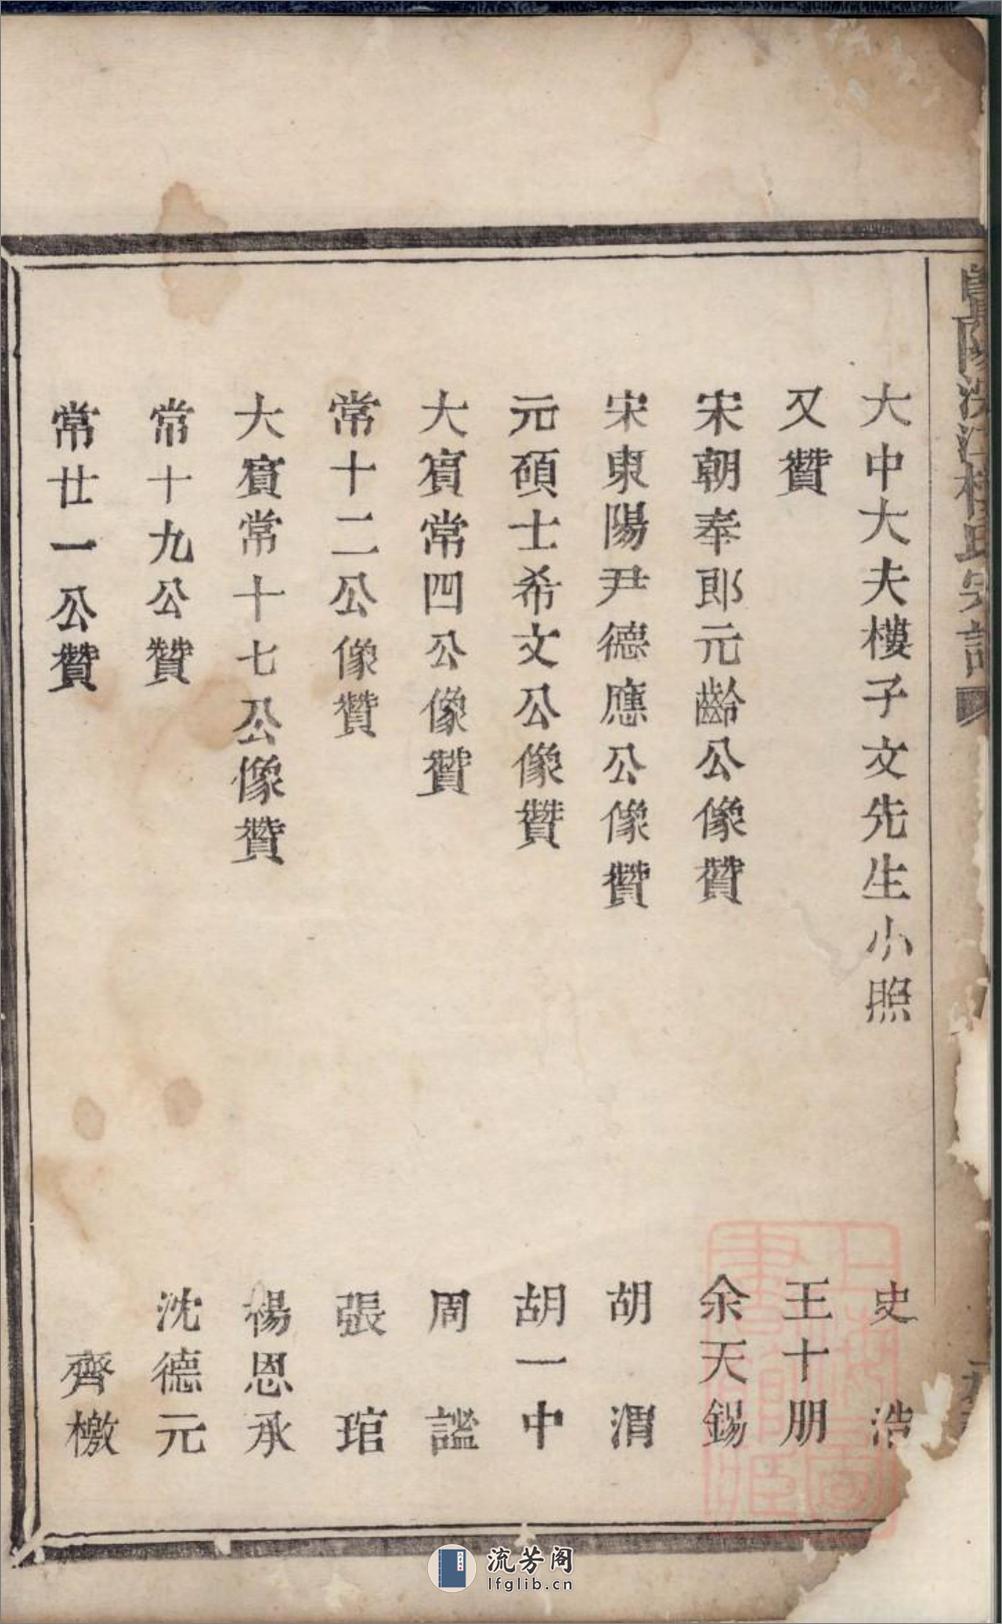 暨陽洪江樓氏宗譜
大中大夫樓子文先生小照 史浩
又贊 王十朋
宋朝奉郎元齡公像贊 余天錫
宋東陽尹德應公像贊 胡渭
元碩士希文公像贊 胡一中
大賓常四公像贊 周謐
常十二公像贊 張琯
大賓常十七公像贊 楊恩承
常十九公贊 沈德元
常廿一公贊 齊檄
流芳阁
lfglib.cn